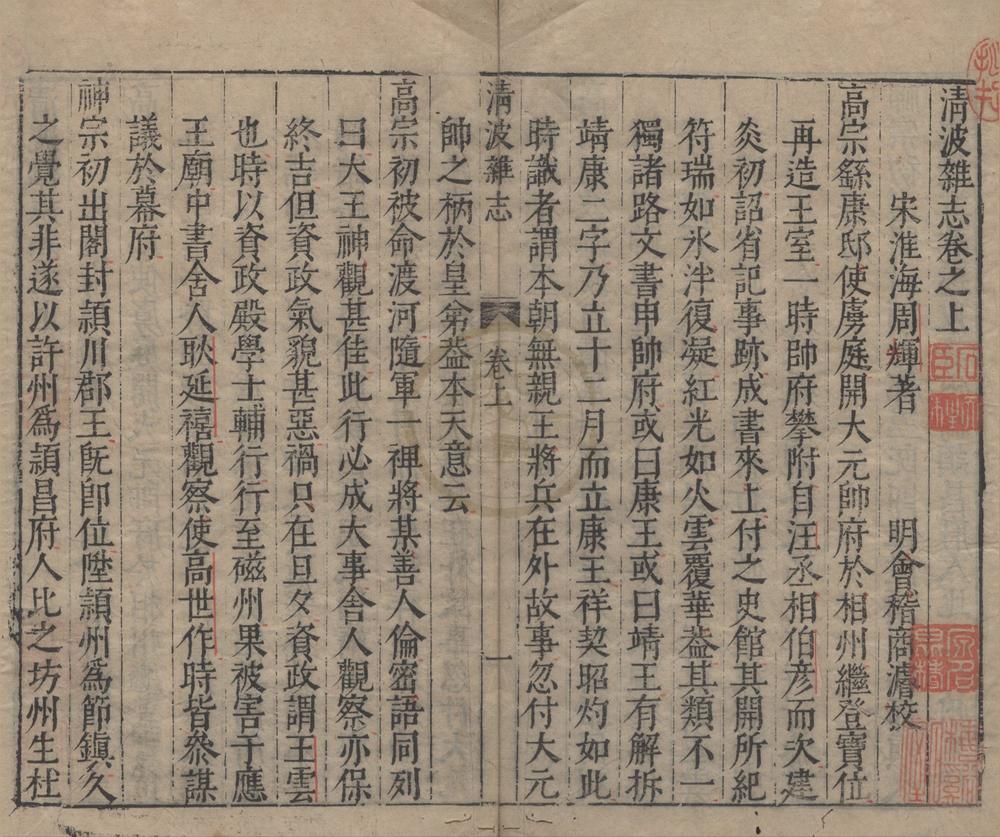 清波雜志卷之上
宋淮海周煇著　明會稽商濬校
高宗繇康邸使虜庭開大元帥府於相州繼登寶位
再造王室一時帥府攀附自汪丞相伯彦而次建
炎初詔省記事跡成書來上付之史館其開所紀
符瑞如氷泮復凝紅光如火雲覆華葢其類不一
獨諸路文書申帥府或曰康王或曰靖王有解拆
靖康二字乃立十二月而立康王祥契昭灼如此
時識者謂本朝無親王將兵在外故事忽付大元
清波雜志　卷上　一
帥之柄於皇第葢本天意云
高宗初被命渡河隨軍一禆將某善人倫密語同列
曰大王神觀甚佳此行必成大事舍人觀察亦保
終吉但資政氣貌甚惡禍只在旦夕資政謂王雲
也時以資政殿學士輔行行至磁州果被害于應
王廟中書舍人耿延禧觀察使高世作時皆叅謀
議於幕府
神宗初出閣封頴川郡王既卽位陞頴州爲節鎮久
之覺其非遂以許州爲頴昌府人比之坊州生杜